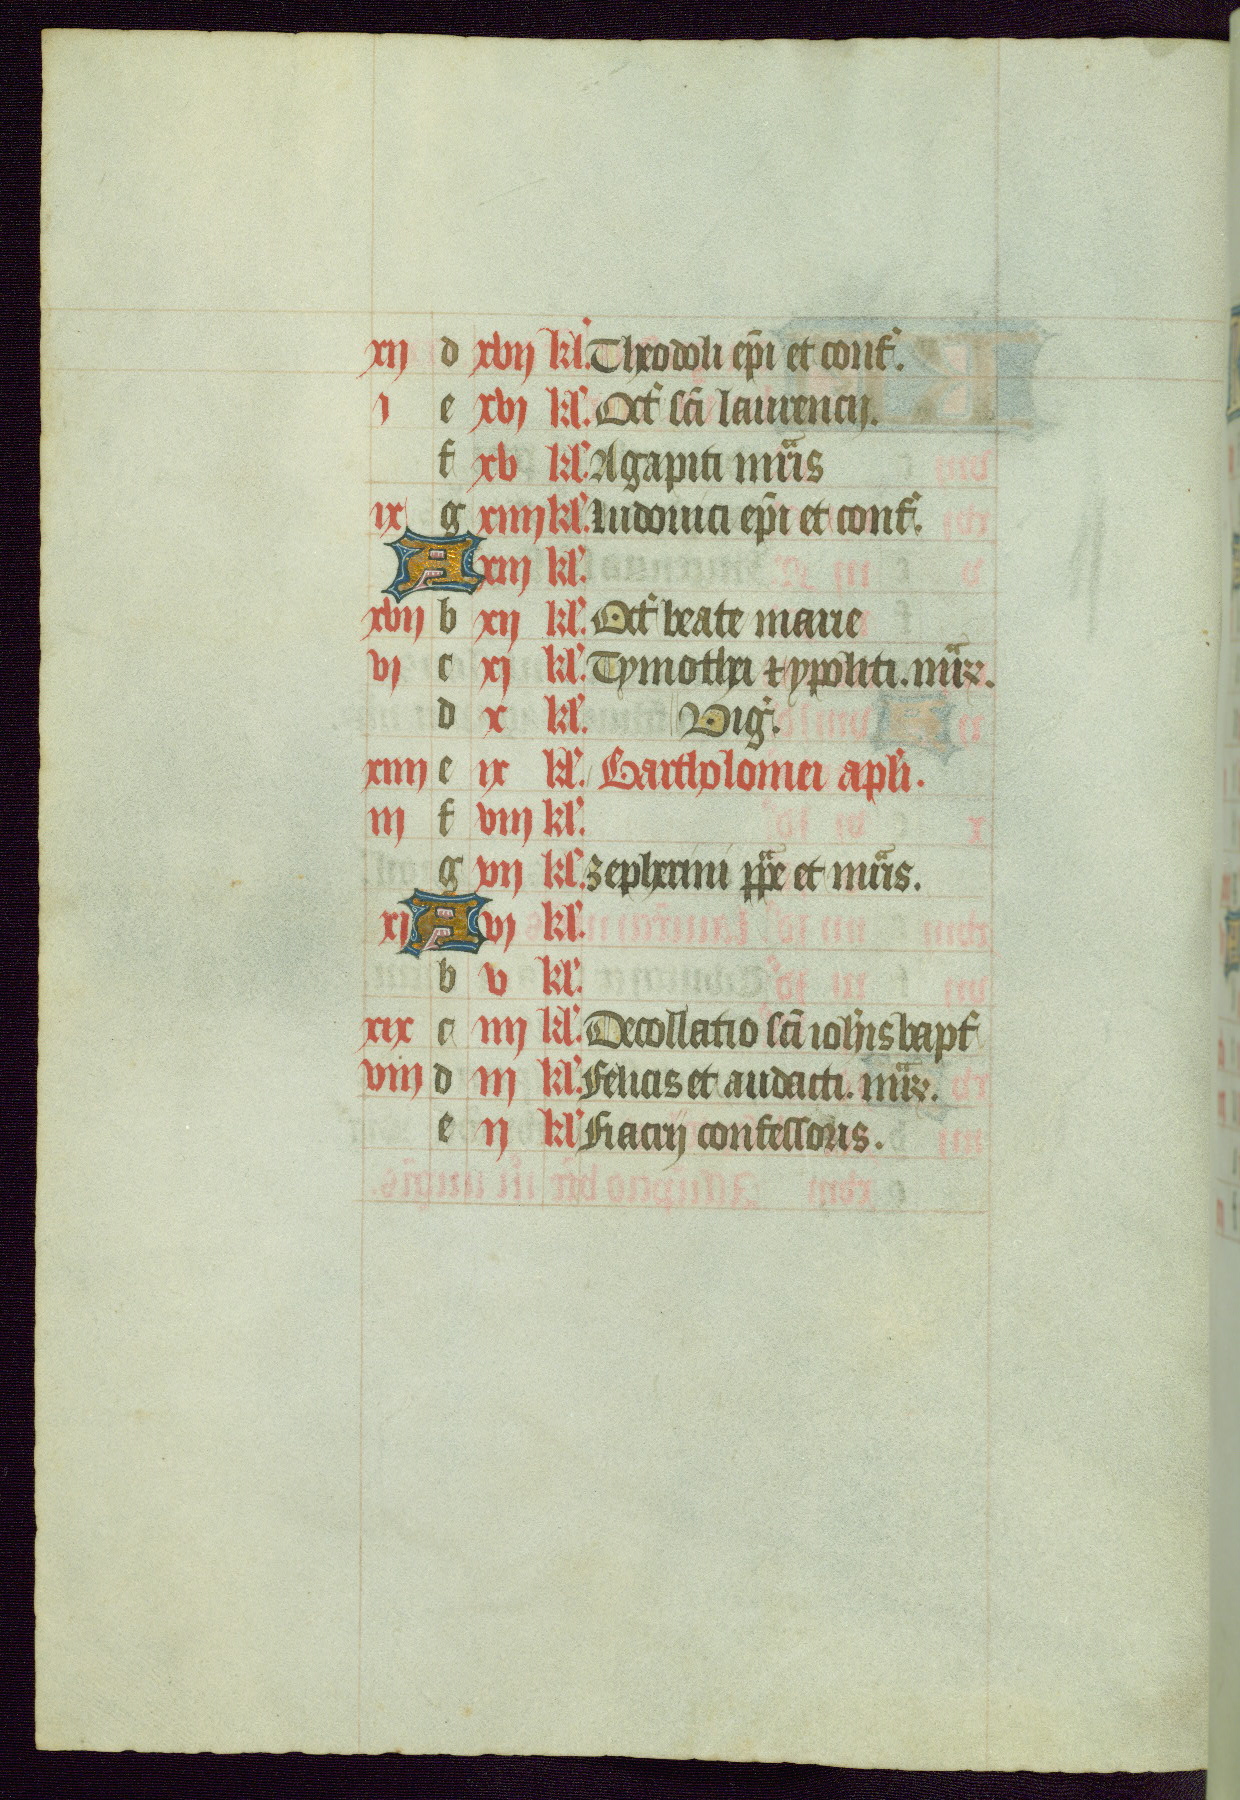 xij d xvij kl'. Theodoli ep̄i et conf'.
i e xvj kl'. Oct' sc̄i laurencij.
f xv kl'. Agapiti mr̄is
ix g xiiij kl'. Ludouici ep̄i et conf'.
A xiij kl'.
xvij b xij kl'. Oct' beate marie
vj c xj kl'. Tymothei ⁊ ypoliti. mr̄ꝝ.
d x kl'. Vig'.
xiiij e ix kl'. Bartholomei apl'i.
iij f viij kl'.
g vij kl'. Zepherini pp̄e et mr̄is.
xj A vj kl'.
b v kl'.
xix c iiij kl'. Decollatio sc̄i ioh'is bapt'
viij d iij kl'. Felicis et audacti. mr̄ꝝ.
e ij kl'. Fiacrij confessoris.